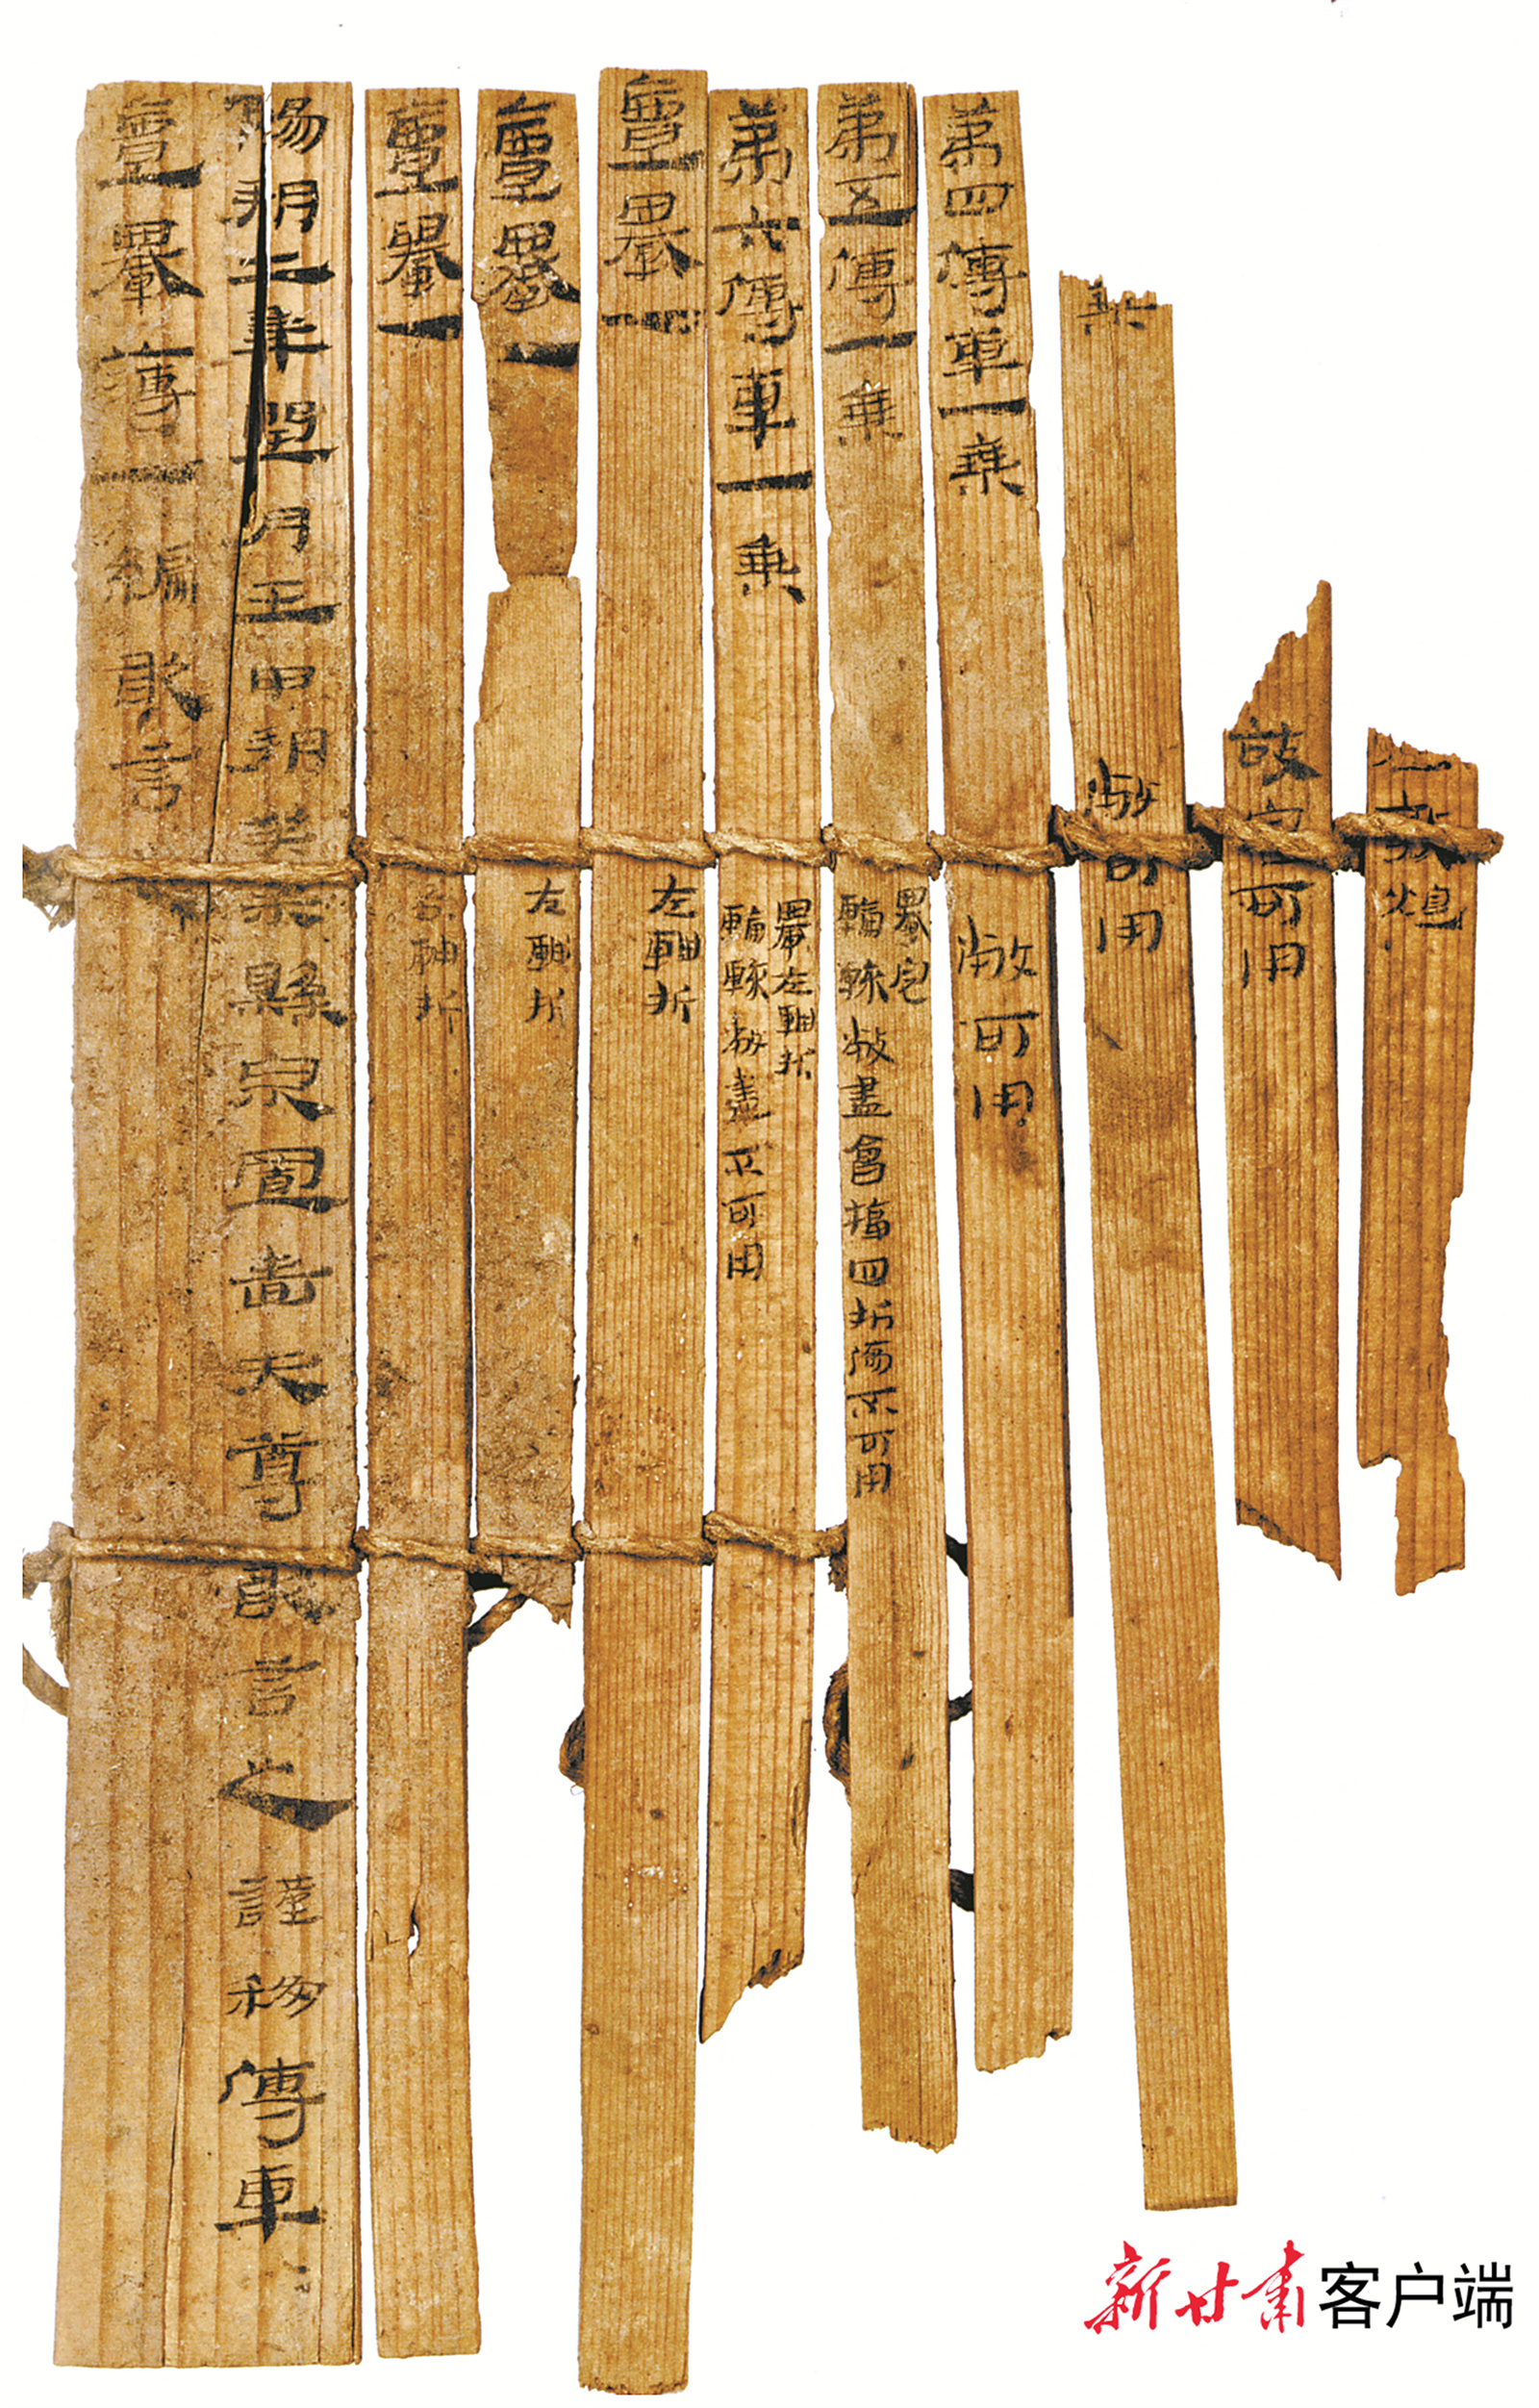 完可用
乘 敝可用
第四傳車一乘 敝可用
第五傳一乘 轝完
輪轅敝盡會楅四折傷不可用
第六傳車一乘 轝左軸折
輪轅敝盡不可用
亶轝一 左軸折
亶轝一 左軸折
亶轝一 左軸折
陽朔二年閏月壬申朔癸未縣泉置嗇夫尊敢言之謹移傳車
亶轝簿一編敢言之
新甘肃客户端